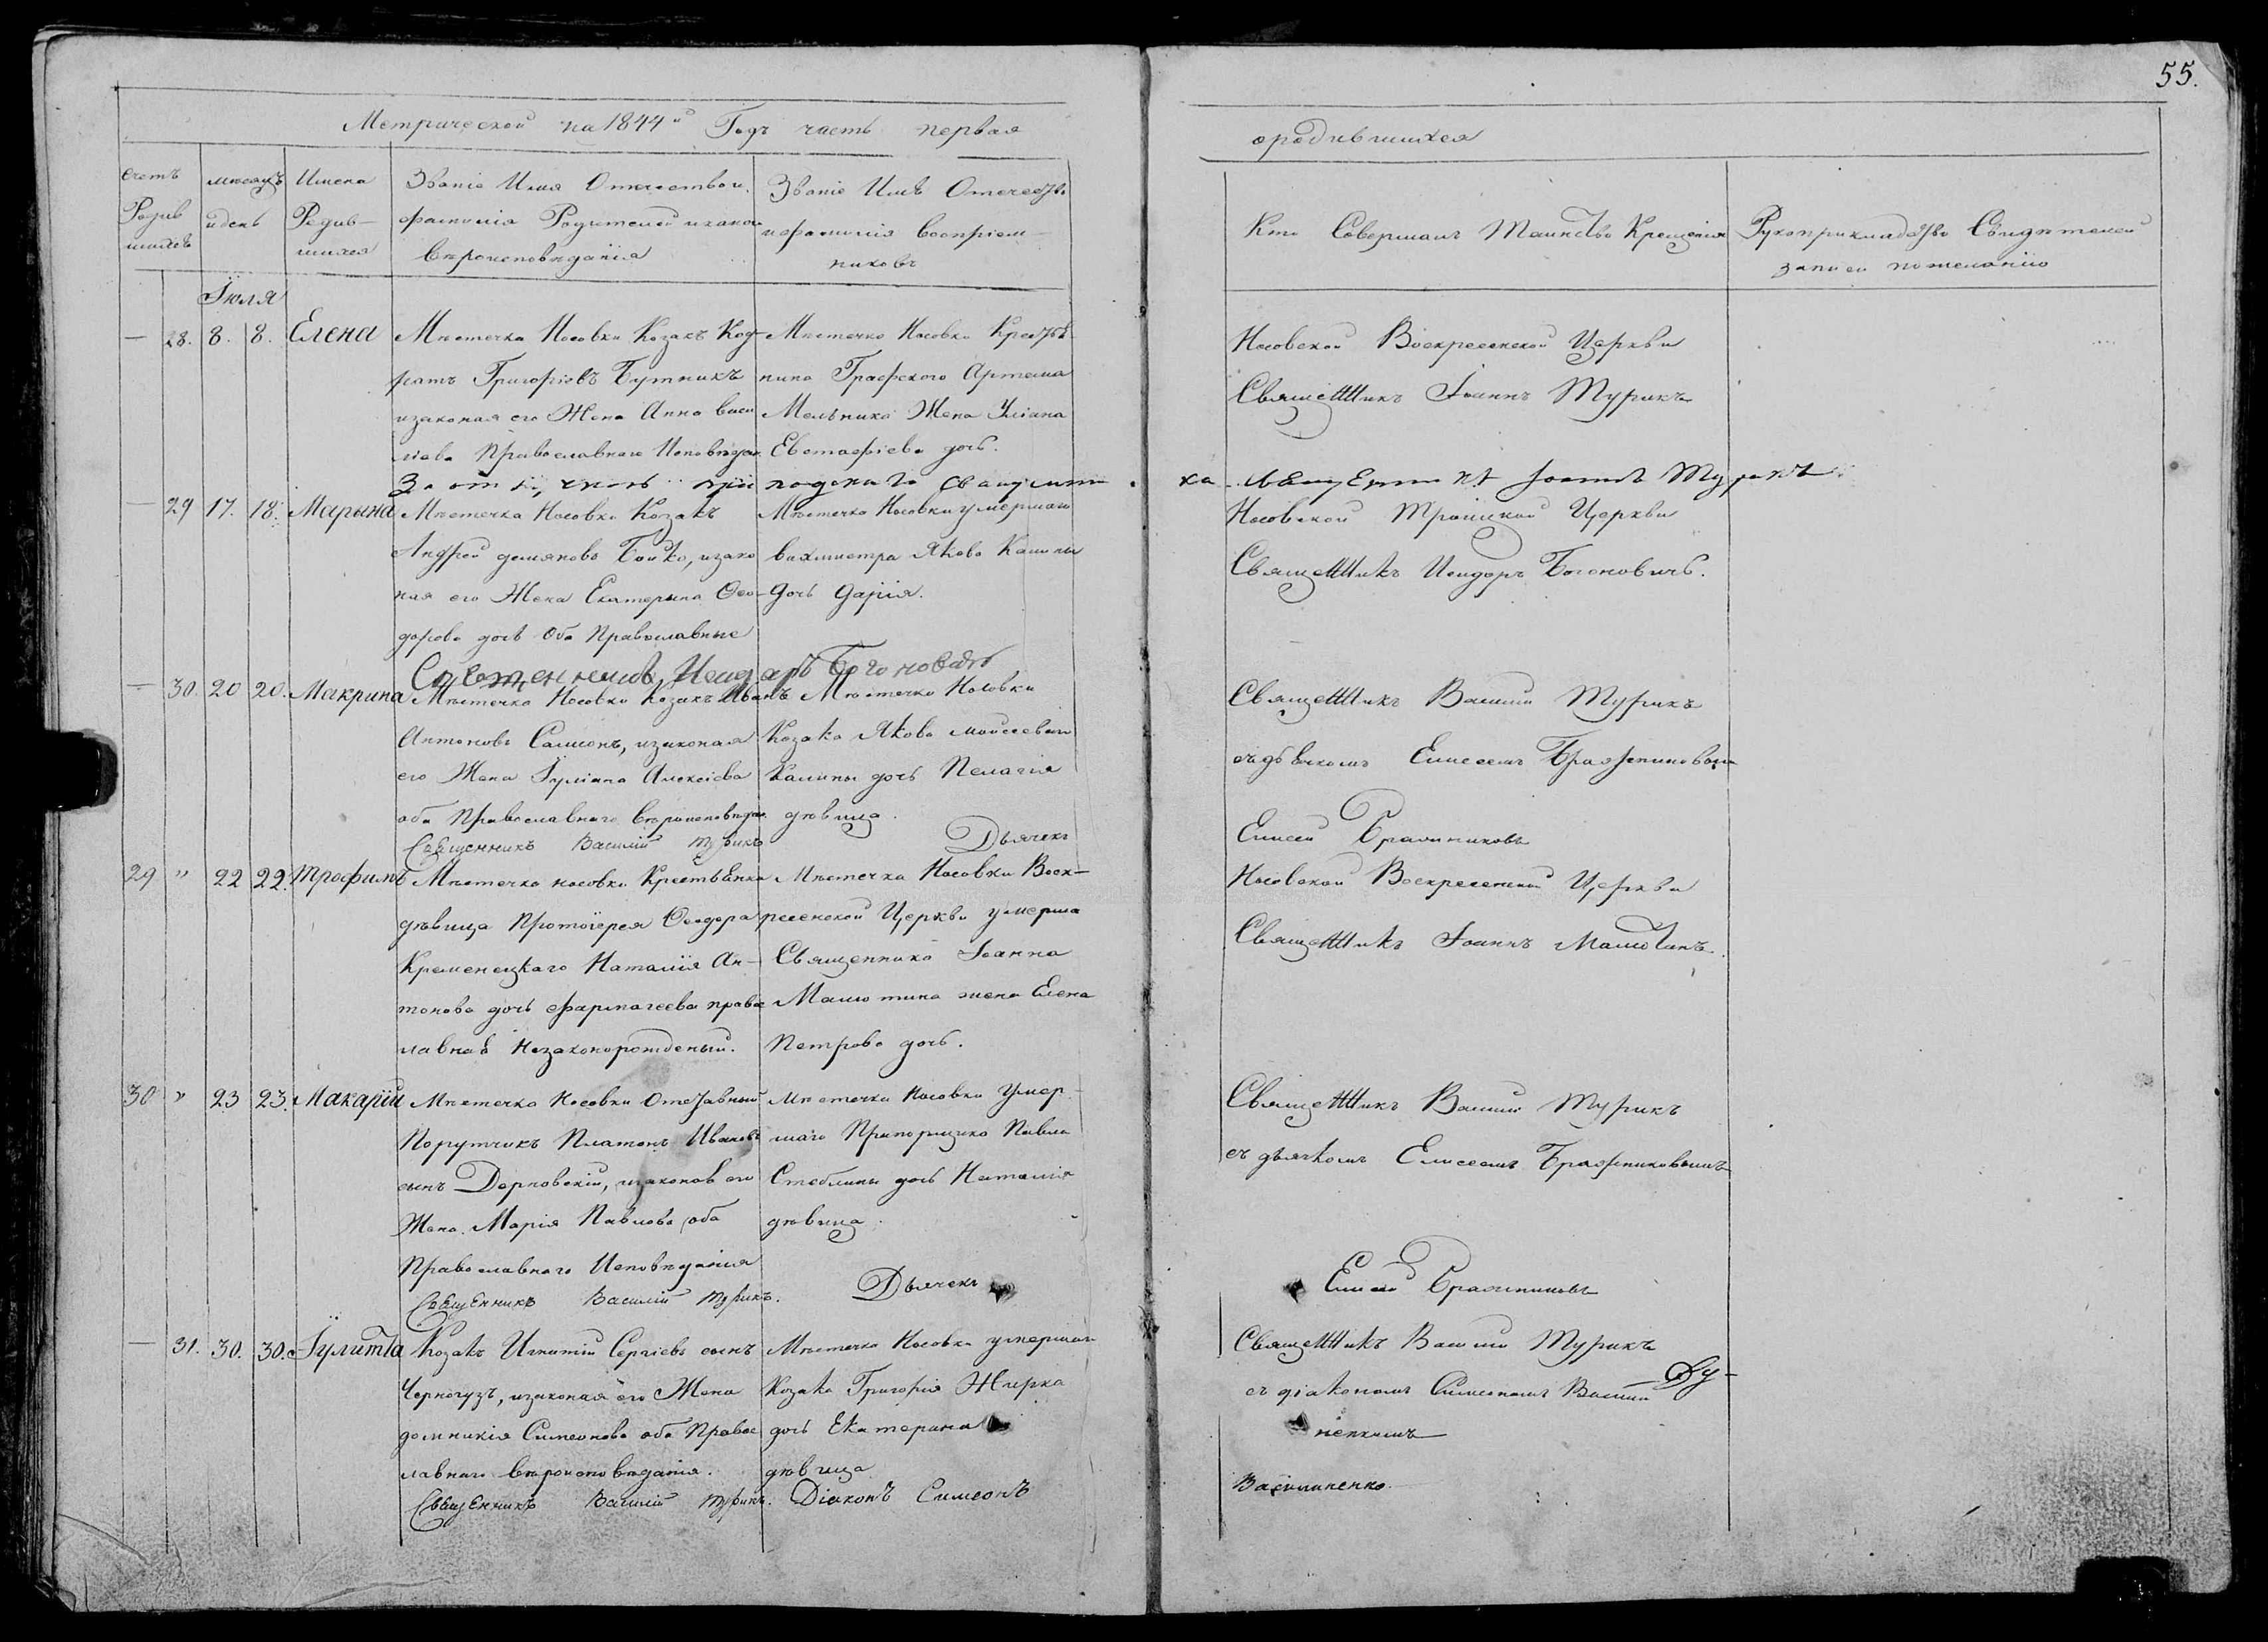 55.
Метрической на 1844й Годъ часть первая
о родившихся
счетъ Родившихся
мѣсяцъ и день
Имена Родившихся
Званіе Имя Отечество и фамилія Родителей и какого вѣроисповѣданія
Званіе Имя Отечество и фамилія воспріемниковъ
Кто Совершалъ Таинство Крещенія
Рукоприкладство Свидѣтелей записи по желанію
Іюля
— 28. 8. 8. Елена
Мѣстечка Носовки Козакъ Код-
ратъ Григоріевъ Бутникъ
изаконая его Жена Анна Васи
ліева Православнаго Исповѣдан.
Мѣстечка Носовки Крестья
нина Графского Артема
Мельника Жена Уліана
Евстафіева дочь.
Носовской Воскресенской Церкви
Священникъ Іоаннъ Турикъ
Іоаннъ Турикъ
— 29 17. 18. Марына
Мѣстечка Носовки Козакъ
Андрей демяновъ Бойко, изако
ная его Жена Екатерына Ѳео-
дорова дочь Оба Православные
Мѣстечка Носовки умершаго
вахмистра Якова Калины
дочь Дарія.
Носовской Троицкой Церкви
Священникъ Исидоръ Богоновичъ.
Священникъ Исидоръ Богоновичъ
— 30. 20 20. Макрина
Мѣстечка Носовки Козакъ Иванъ
Антоновъ Самсонъ, изаконая
его Жена Іуліана Алексіева
оба Православнаго вѣроисповѣдан.
Мѣстечка Носовки
Козака Якова моисеевича
Калины дочь Пелагія
дѣвица.
Священникъ Василій Турикъ
съ дьячкомъ Елисеемъ Бражниковымъ
Священникъ Василій Турикъ
Дьячекъ Елисей Бражниковъ
29 " 22 22. Трофимъ
Мѣстечка носовки Крестьянка
дѣвица Протоіерея Ѳеодора
Кременецкаго Наталія Ан-
тонова дочь Фармагеева правос
лавная Незаконорожденый.
Мѣстечка Носовки Воск-
ресенской Церкви умерша
Священника Іоанна
Малютина жена Елена
Петрова дочь.
Носовской Воскресенской Церкви
Священникъ Іоаннъ Малютинъ.
30 " 23 23. Макарій
Мѣстечка Носовки Отставный
Порутчикъ Платонъ Ивановъ
сынъ Дерновскій, изаконая его
Жена Марія Павлова оба
Православнаго Исповѣданія
Мѣстечка Носовки Умер-
шаго Прапорщика Павла
Стеблины дочь Наталія
дѣвица.
Священникъ Василій Турикъ
съ дьячкомъ Елисеемъ Бражниковымъ
Священникъ Василій Турикъ.
Дьячекъ Елисей Бражниковъ
— 31. 30. 30. Іулитта
Козакъ Игнатій Сергіевъ сынъ
Черногузъ, изаконая его Жена
домникія Симеонова оба Правос
лавнаго вѣроисповѣданія.
Мѣстечка Носовки умершаго
Козака Григорія Жирка
дочь Екатерина
дѣвица
Священникъ Василій Турикъ
съ діакономъ Симеономъ Васили
ненкомъ
Священникъ Василій Турикъ. Діаконъ Симеонъ
Василиненко.